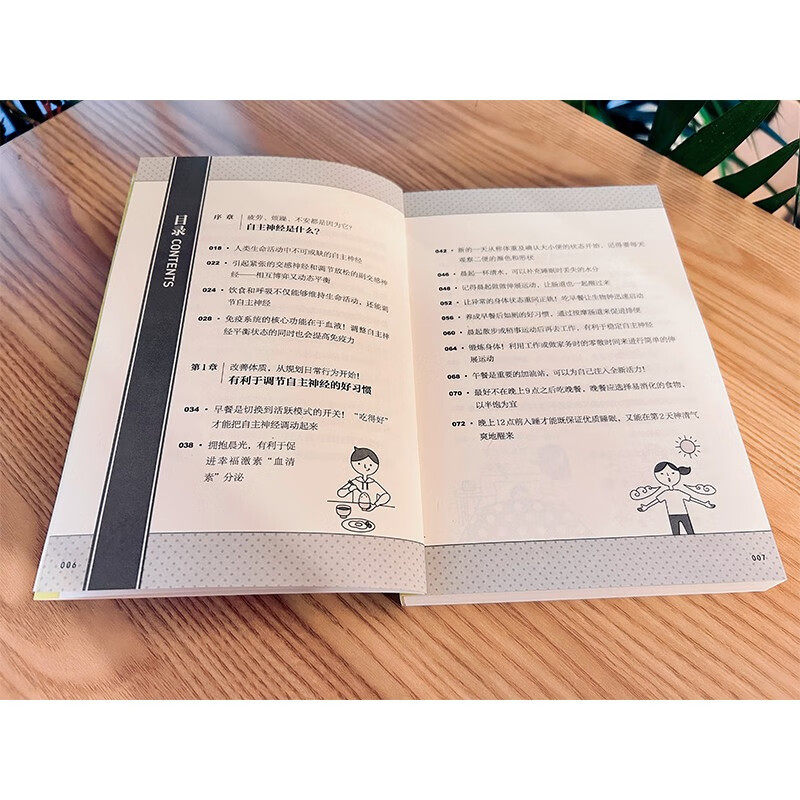 目录 CONTENTS
序 章
疲劳、烦躁、不安都是因为它？
自主神经是什么？
018 • 人类生命活动中不可或缺的自主神经
022 • 引起紧张的交感神经和调节放松的副交感神
经——相互博弈又动态平衡
024 • 饮食和呼吸不仅能够维持生命活动，还能调
节自主神经
028 • 免疫系统的核心功能在于血液！调整自主神
经平衡状态的同时也会提高免疫力
第1章
改善体质，从规划日常行为开始！
有利于调节自主神经的好习惯
034 • 早餐是切换到活跃模式的开关！“吃得好”
才能把自主神经调动起来
038 • 拥抱晨光，有利于促
进幸福激素“血清
素”分泌
006
042 • 新的一天从称体重及确认大小便的状态开始，记得要每天
观察二便的颜色和形状
046 • 晨起一杯清水，可以补充睡眠时丢失的水分
048 • 记得晨起做做伸展运动，让肠道也一起醒过来
052 • 让异常的身体状态重回正轨！吃早餐让生物钟迅速启动
056 • 养成早餐后如厕的好习惯，通过按摩肠道来促进排便
060 • 晨起散步或稍事运动后再去工作，有利于稳定自主神经
064 • 锻炼身体！利用工作或做家务时的零散时间来进行简单的伸
展运动
068 • 午餐是重要的加油站，可以为自己注入全新活力！
070 • 最好不在晚上9点之后吃晚餐，晚餐应选择易消化的食物、
以半饱为宜
072 • 晚上12点前入睡才能既保证优质睡眠，又能在第2天神清气
爽地醒来
007